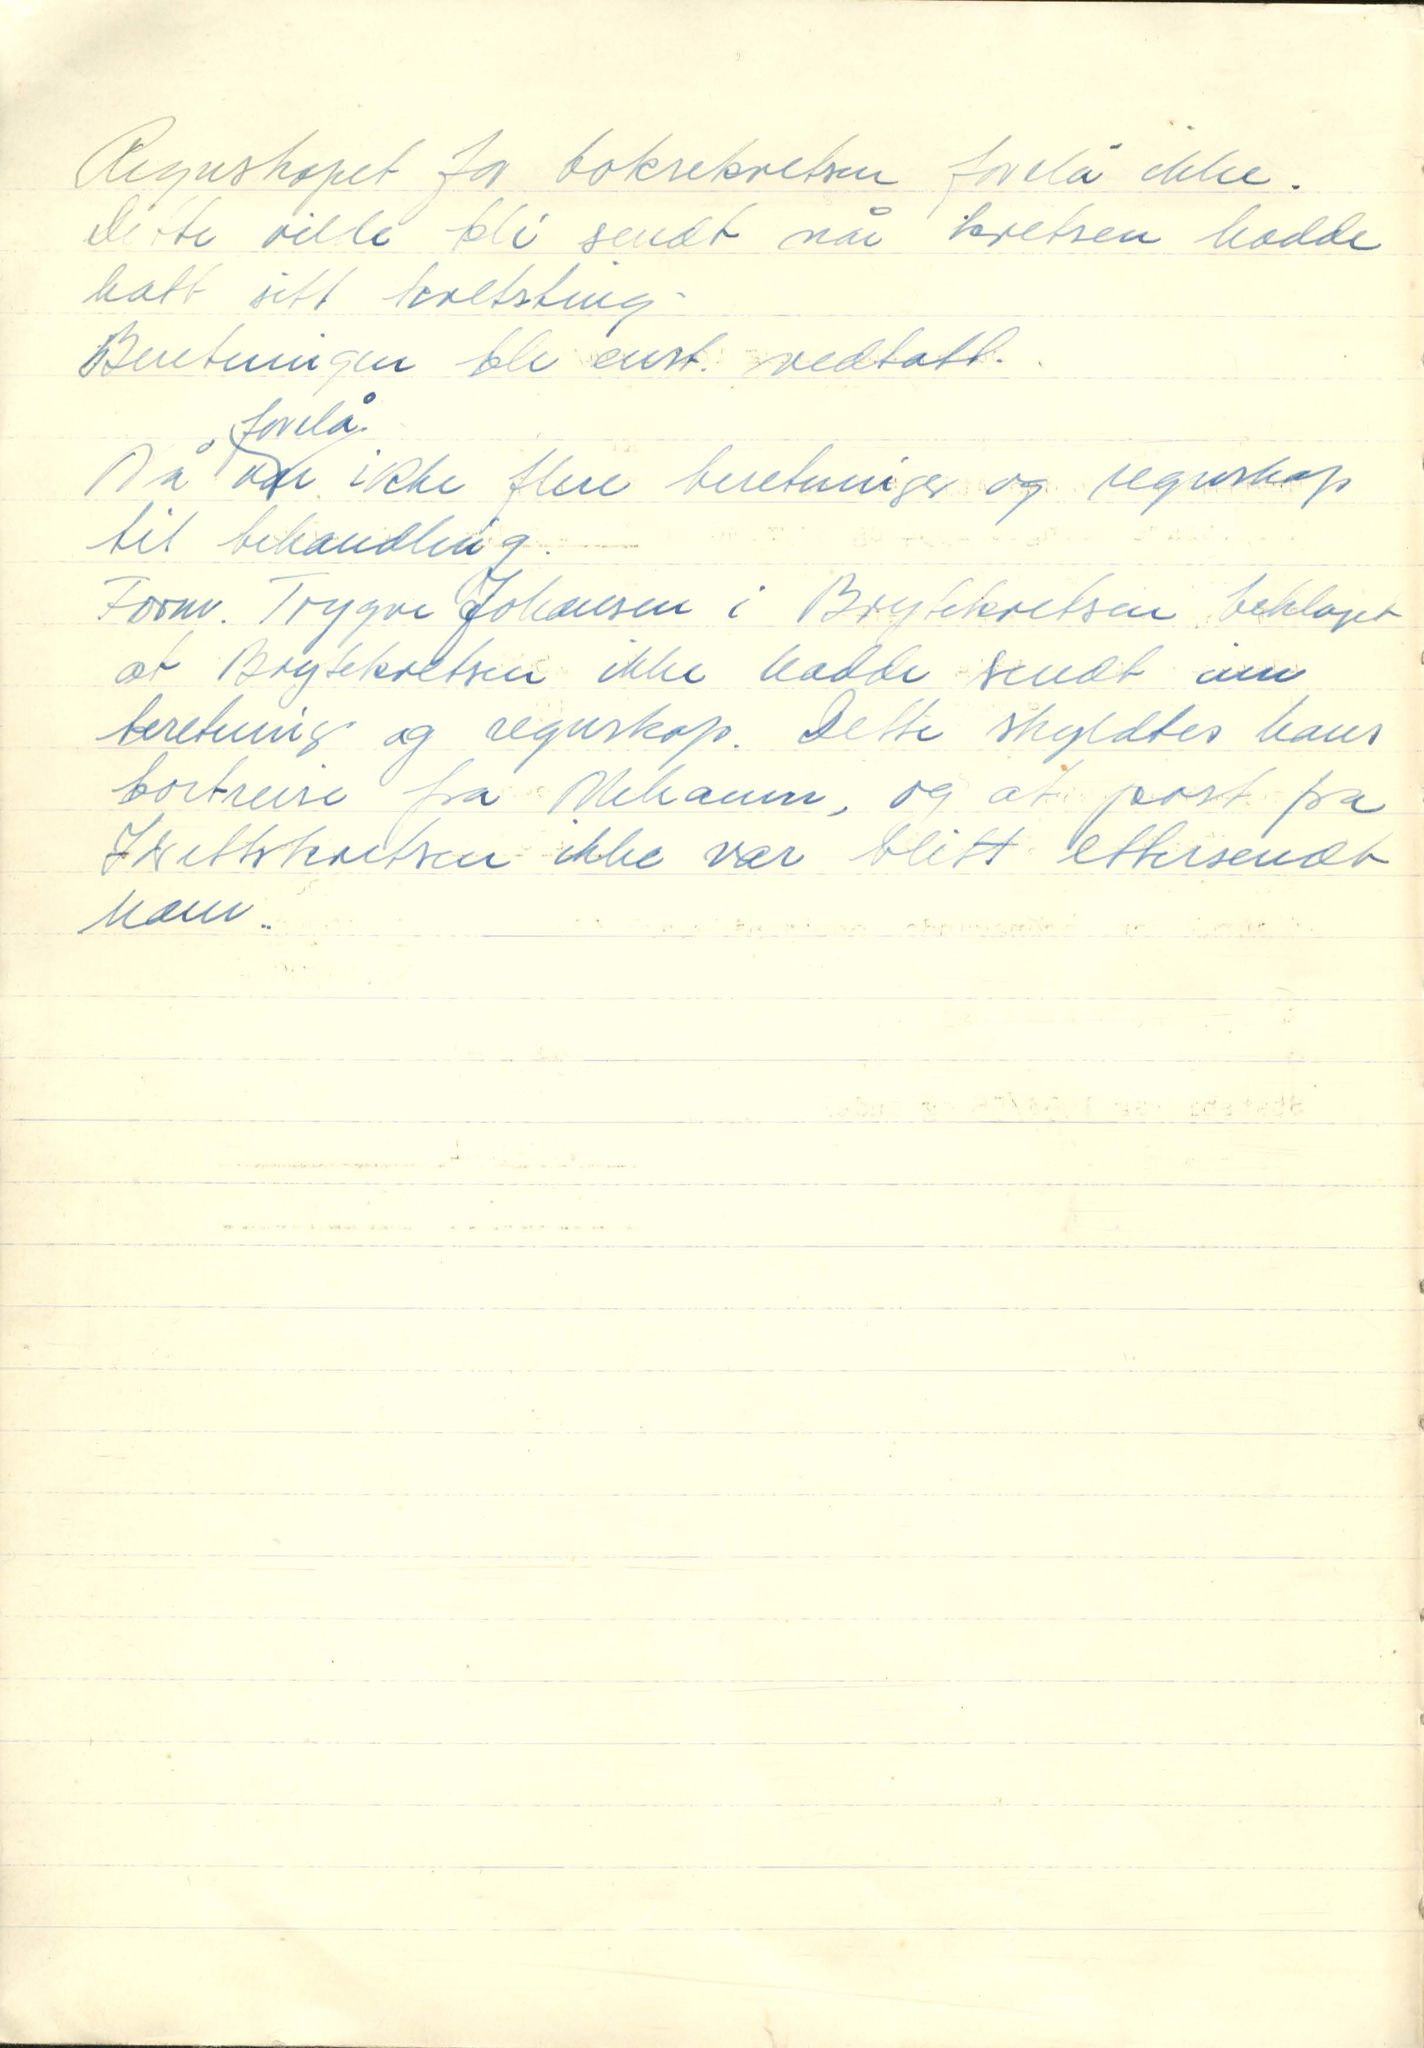 Regnskapet for boksekretsen forelå ikke.
Dette ville bli sendt når kretsen hadde
hatt sitt kretsting.
Beretningen ble enst. vedtatt.
forelå
Nå var ikke flere beretninger og regnskap
til behandling.
Formv. Trygve Johansen i Brytekretsen beklaget
at Brytekretsen ikke hadde sendt inn
beretning og regnskap. Dette skyldtes hans
bortreise fra Mehamn, og at post fra
Idrettskretsen ikke var blitt ettersendt
ham.